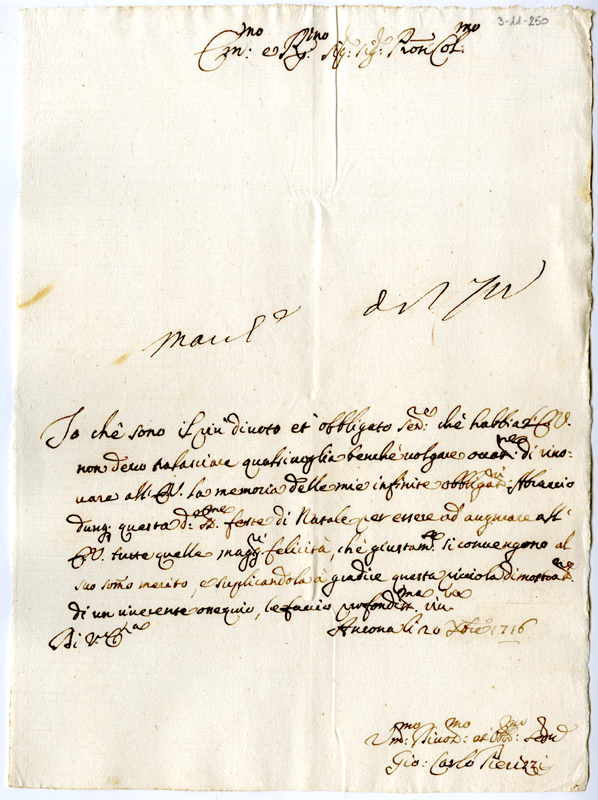 3-11-250
Em:mo e R:mo Sig: Sig: Pron Col:mo
Io che sono il più divoto et obbligato Ser:e che habbia l'E.V.
non devo tralasciare qualsivoglia benche volgare occas:ne di rino-
vare all'E.V. la memoria delle mie infinite obbligat:ni Abraccio
dunq; questa d:e S:e feste di Natale per essere ad augurare all'
E.V. tutte quelle magg:ri felicità, che giustam:te si convengono al
suo som̃o merito, e suplicandola à gradire questa picciola dimostrat:ne
di un riverente ossequio, le faccio profondiss:ma riv:a
Di V. Em:za Ancona li 20 Xbre 1716
Um:mo Divot:mo et Obb:mo Ser
Gio: Carlo Pierizzi